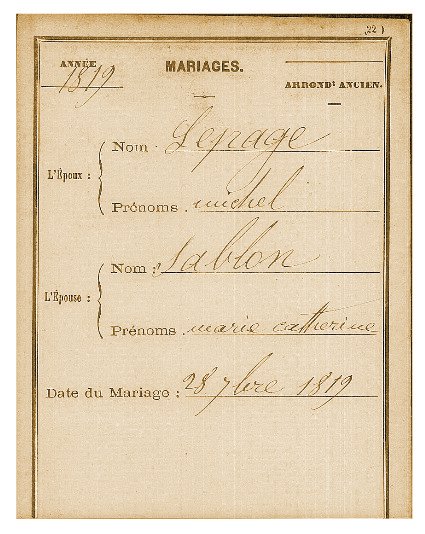 (22)
ANNÉE
1819
MARIAGES.
ARRONDT ANCIEN.
L'Époux :
Nom : Lepage
Prénoms . michel
L'Épouse :
Nom : Sablon
Prénoms . marie catherine
Date du Mariage : 28 7bre 1819